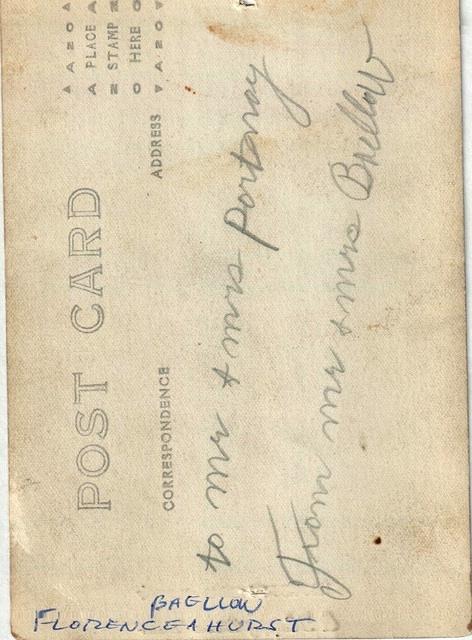 AZO
PLACE
STAMP
HERE
AZO
POST CARD
CORRESPONDENCE
ADDRESS
to mr + mrs Portnoy
From mr + mrs Brellow
BRELLOW
FLORENCE & HURST